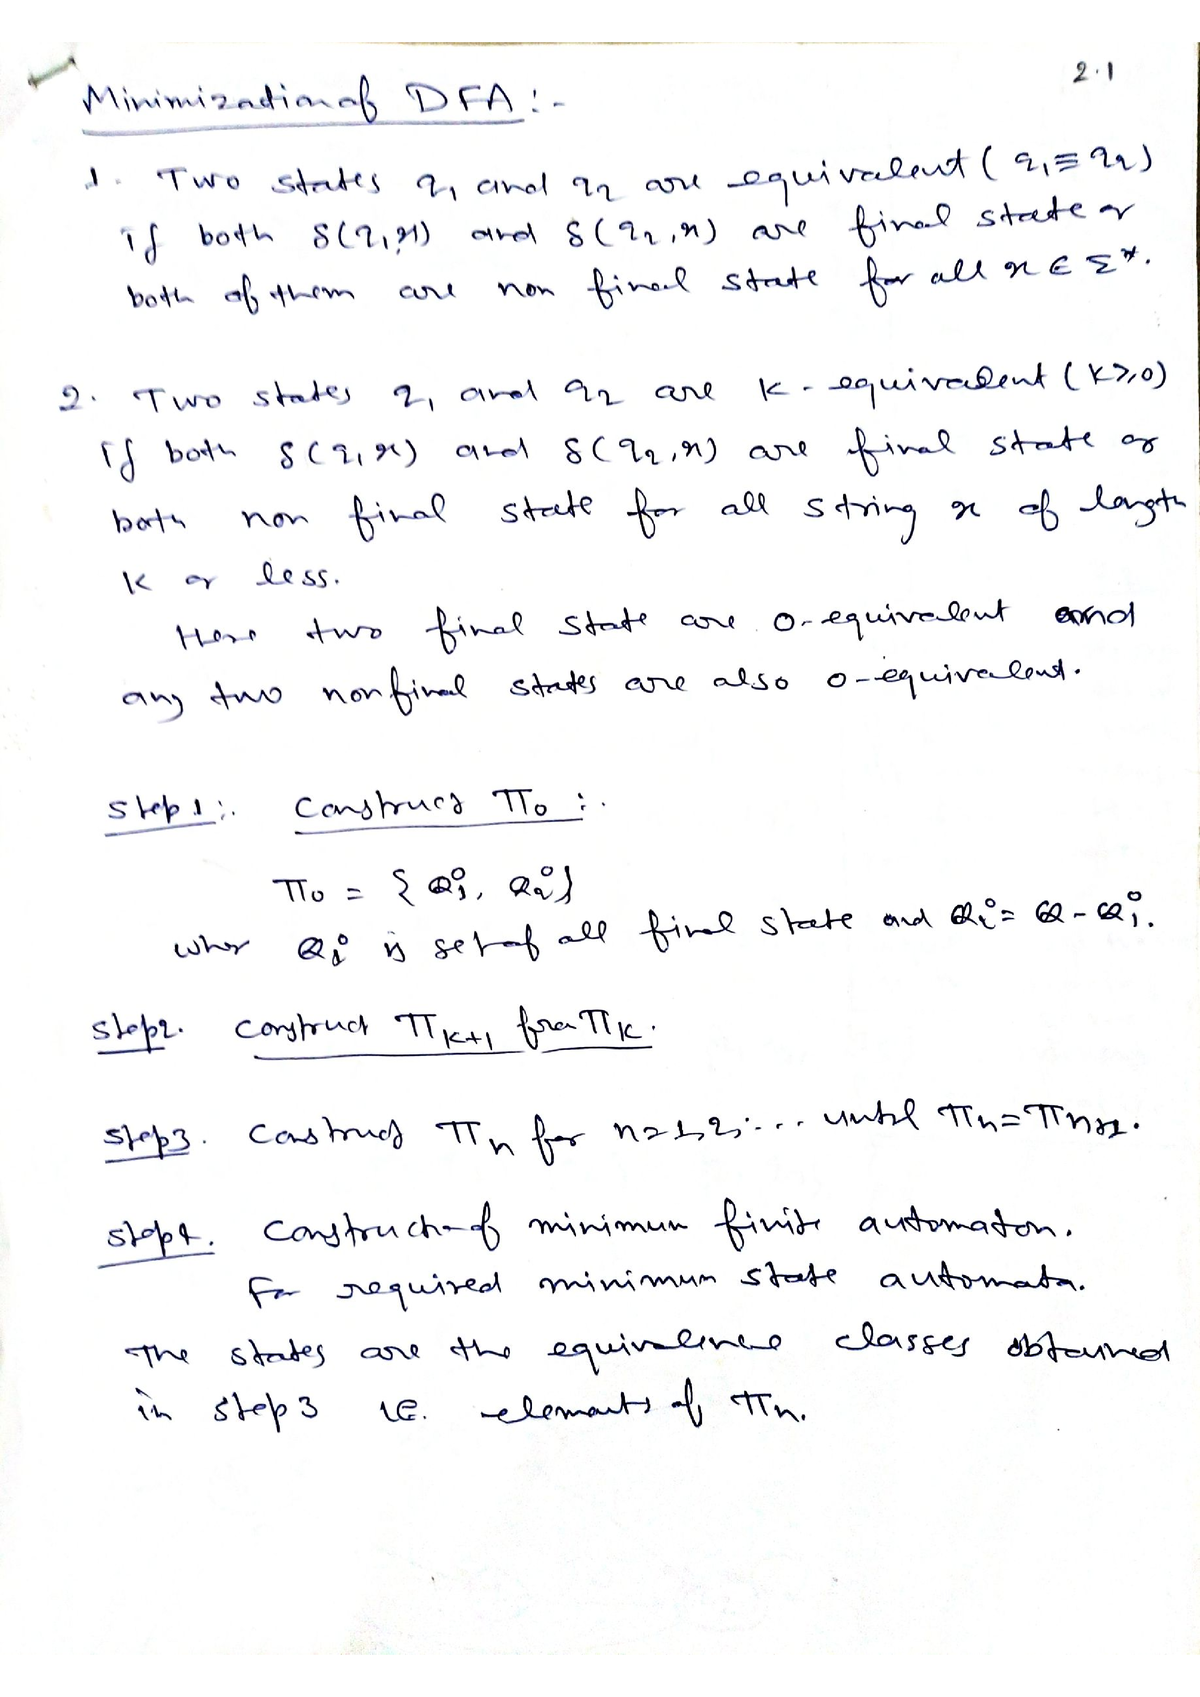 2.1
Minimization of DFA :-
1. Two states q1 and q2 are equivalent ( q1 ≡ q2 )
if both δ(q1,x) and δ(q2,x) are final state or
both of them are non final state for all x ∈ Σ*.
2. Two states q1 and q2 are K-equivalent (K≥0)
if both δ(q1,x) and δ(q2,x) are final state or
both non final state for all string x of length
K or less.
Here two final state are 0-equivalent and
any two nonfinal states are also 0-equivalent.
Step1:. Construct Π0 :.
Π0 = { Q1⁰, Q2⁰ }
wher Q1⁰ is set of all final state and Q2⁰ = Q - Q1⁰.
Step2. Construct ΠK+1 from ΠK.
Step3. Construct Πn for n=1,2,... until Πn = Πn+1.
Step4. Construction of minimum finite automaton.
For required minimum state automata.
The states are the equivalence classes obtained
in step 3 i.e. elements of Πn.